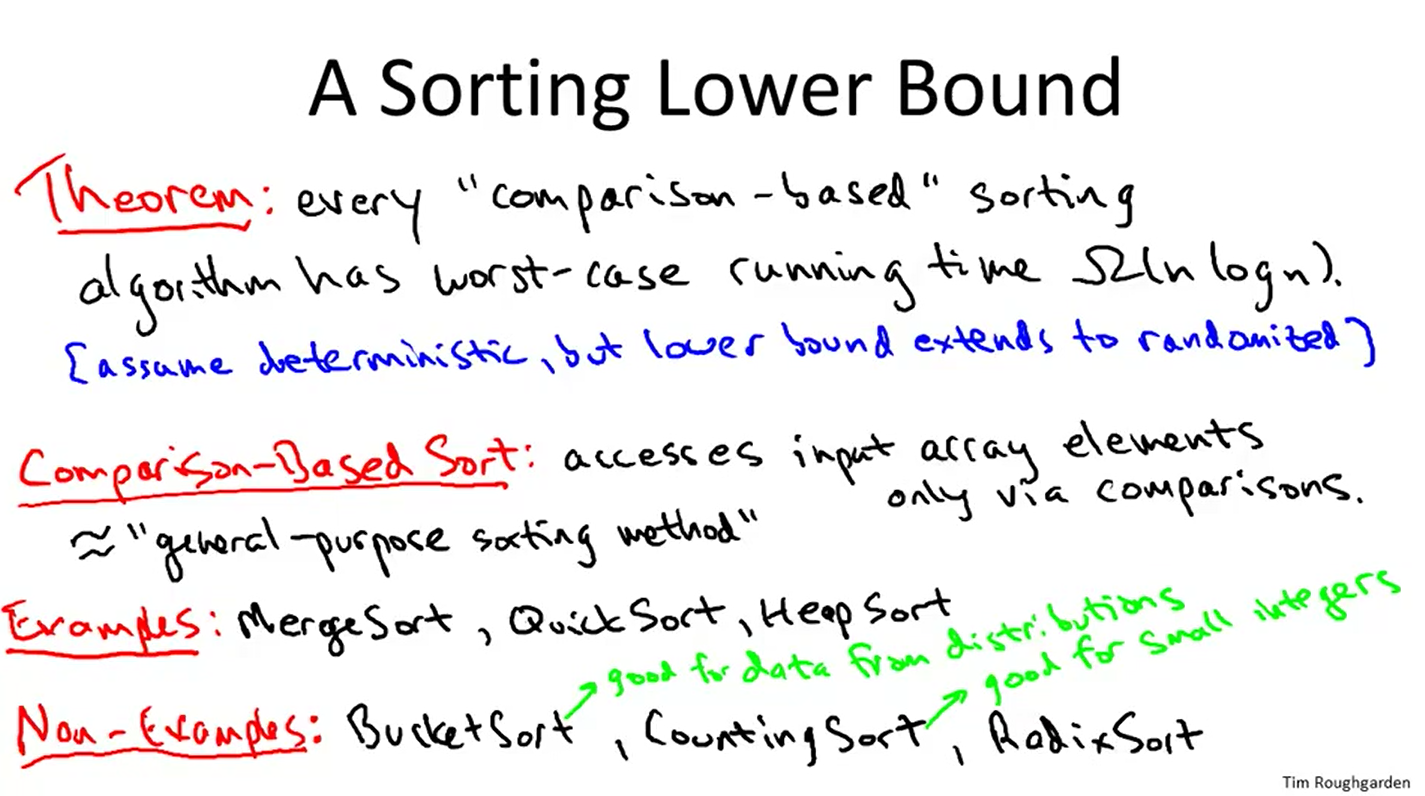 A Sorting Lower Bound
Theorem: every "comparison-based" sorting
algorithm has worst-case running time Ω(n log n).
[assume deterministic, but lower bound extends to randomized]
Comparison-Based Sort: accesses input array elements
only via comparisons.
≈ "general-purpose sorting method"
Examples: MergeSort, QuickSort, HeapSort
good for data from distributions
good for small integers
Non-Examples: BucketSort, CountingSort, RadixSort
Tim Roughgarden